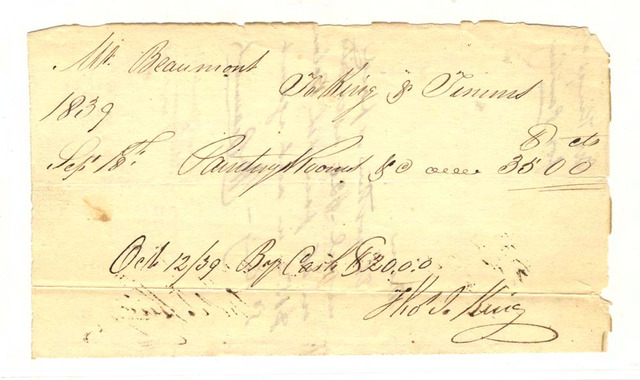 Mr. Beaumont
To King & Timms
1839
$ cts
Sept 18th Painting Rooms &c 35 00
Oct 12/39 By Cash $20.00
Thos J. King